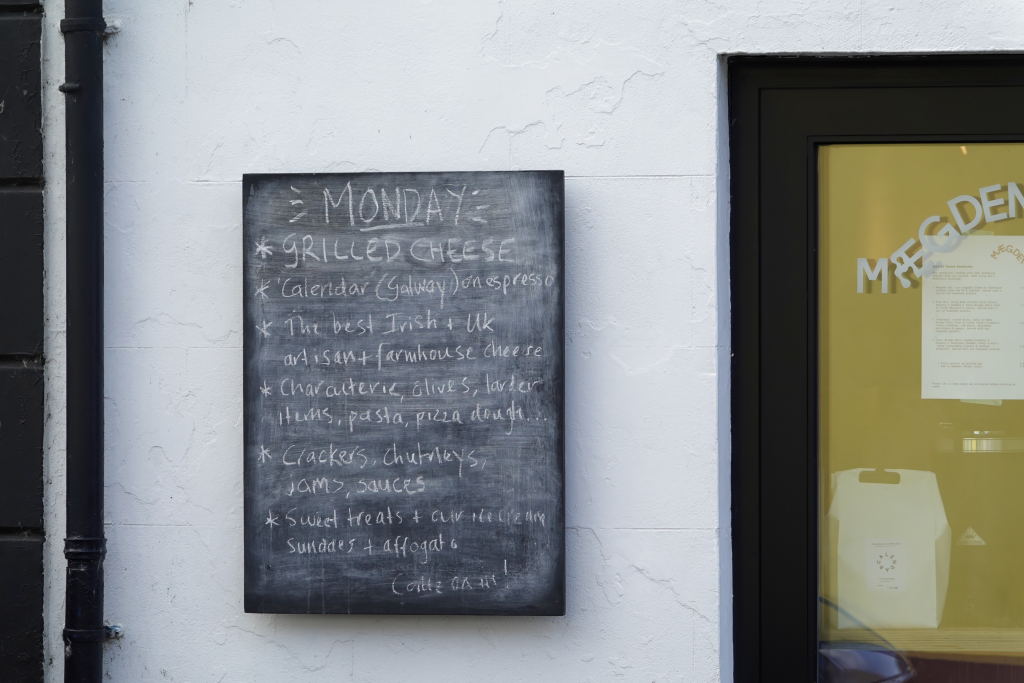 MONDAY
* GRILLED CHEESE
* Calendar (Galway) on espresso
* The best Irish + UK
artisan + farmhouse cheese
* Charcuterie, olives, larder
items, pasta, pizza dough....
* Crackers, chutneys,
jams, sauces
* Sweet treats + our ice cream
sundaes + affogato
on in!
MÆGDEN
MÆGDE